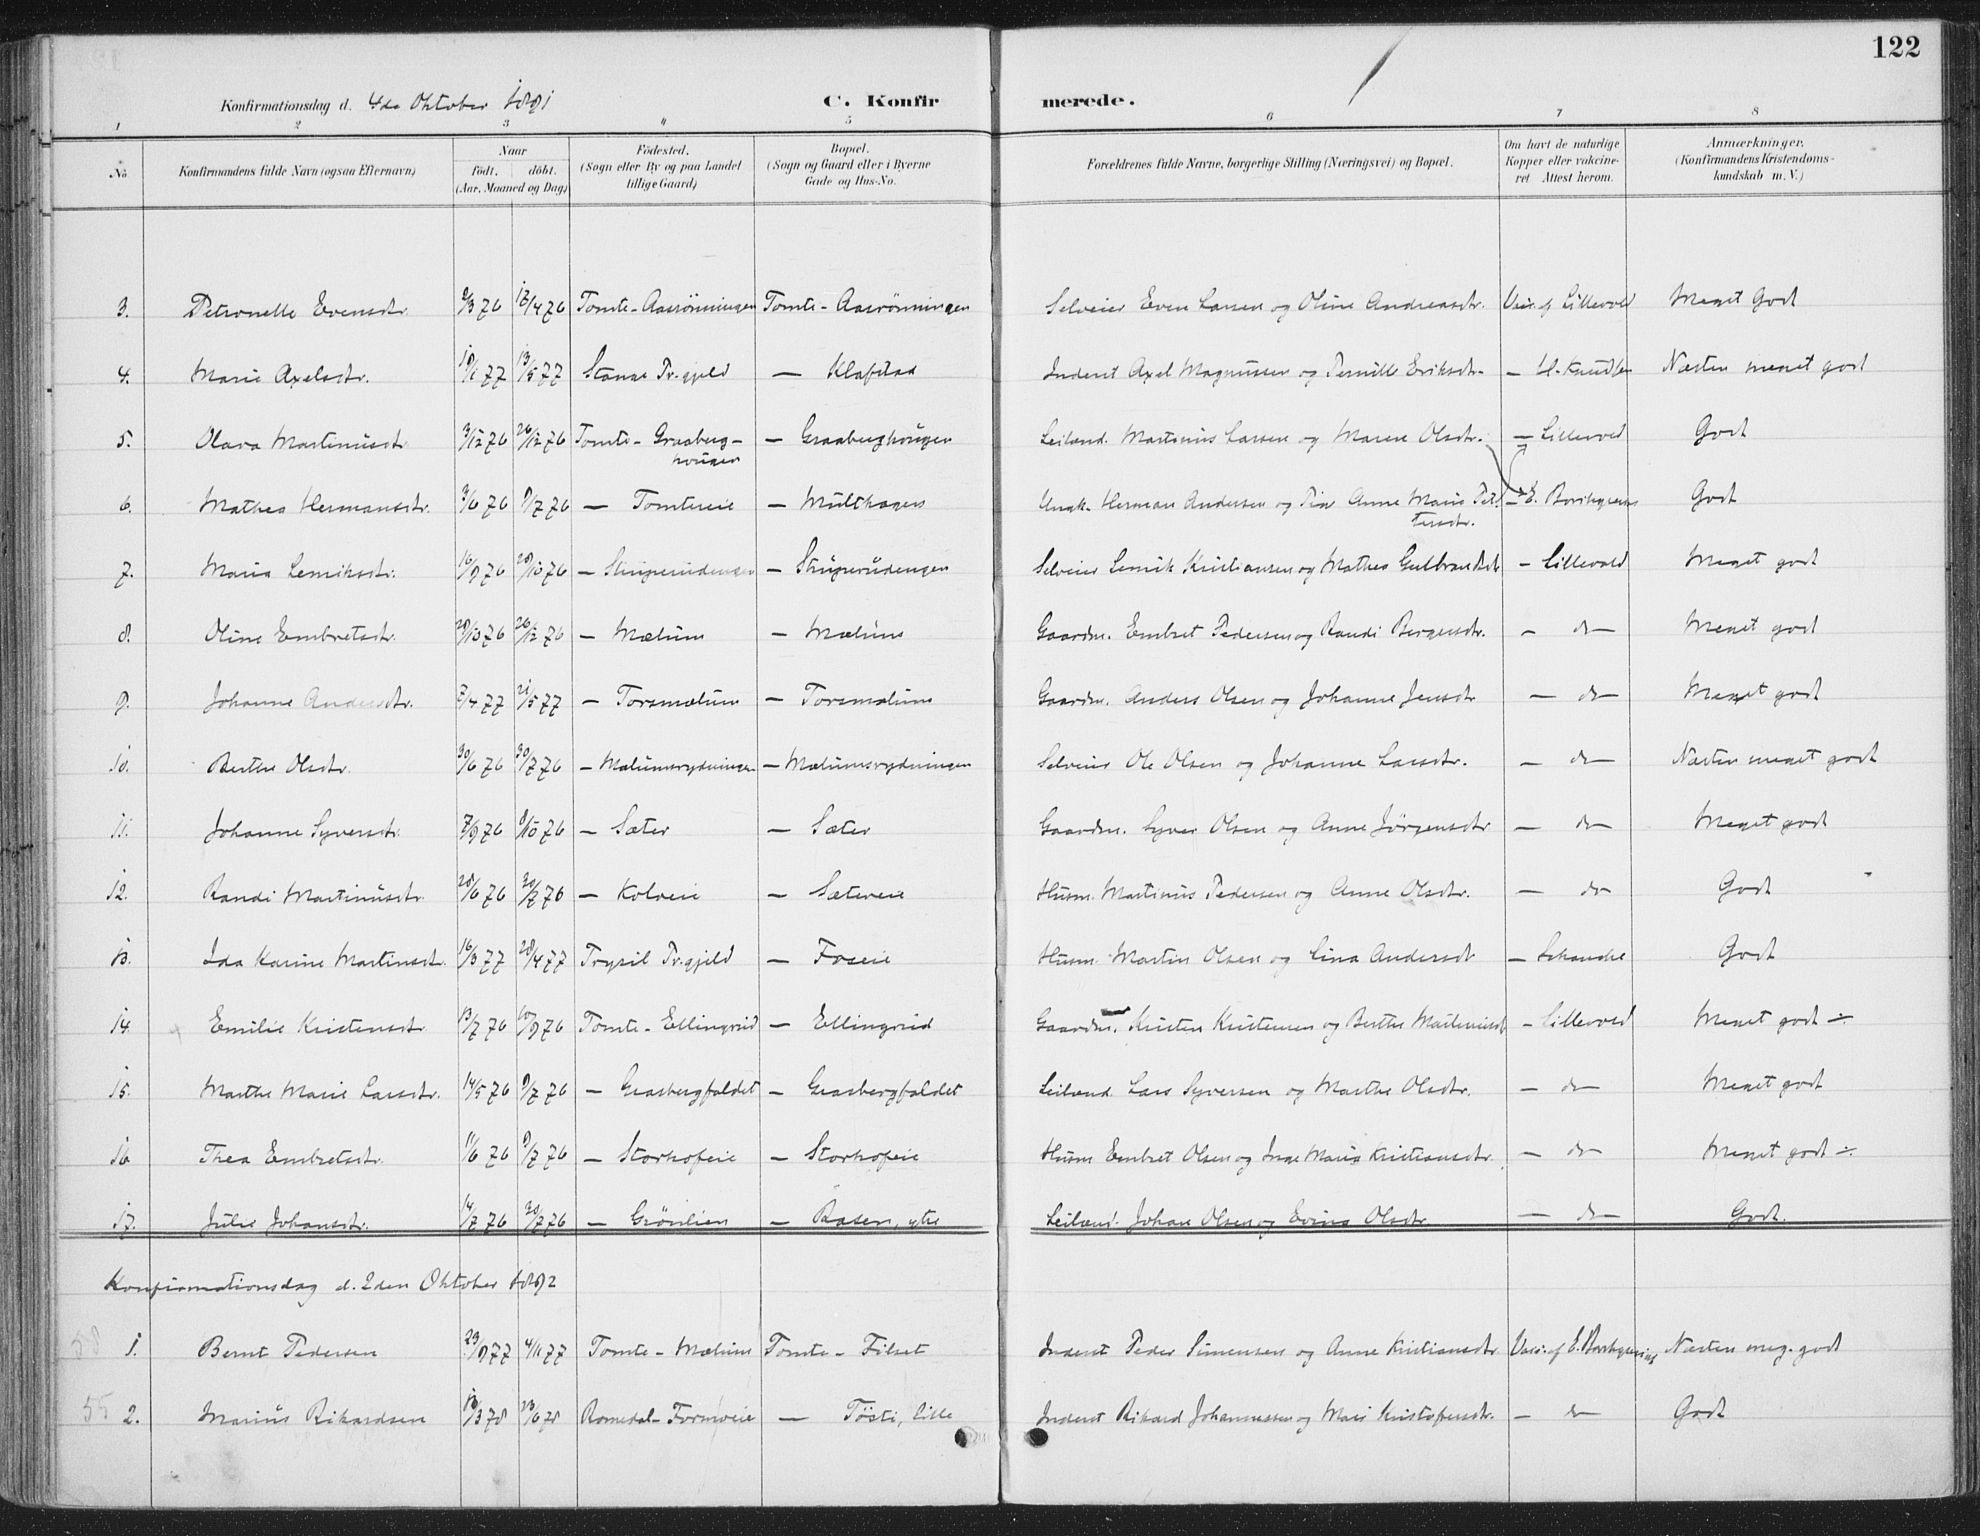 122
Konfirmationsdag d. 4de Oktober 1891 C. Konfirmerede.
1 2 3 4 5 6 7 8
No. Konfirmandens fulde Navn (ogsaa Efternavn) Naar født. døbt. (Aar, Maaned og Dag) Fødested. (Sogn eller By og paa Landet tillige Gaard) Bopæl. (Sogn og Gaard eller i Byerne Gade og Hus-No. Forældrenes fulde Navne, borgerlige Stilling (Næringsvei) og Bopæl. Om havt de naturlige Kopper eller vakcineret Attest herom. Anmærkninger. (Konfirmandens Kristendomskundskab m. V.)
3. Petronelle Evensdtr. 9/3 76 17/4 76 Tomte-Aasrönningen Tomte-Aasrönningen Selveier Even Larsen og Oline Andreasdtr. Vac. af Lillevold Meget Godt
4. Marie Axelsdtr. 19/1 77 13/5 77 Stange Pr.gjeld — Klafstad Inderst Axel Magnussen og Pernille Eriksdtr. — H. Knudsen Næsten meget godt
5. Olava Martinusdtr. 3/12 76 26/12 76 Tomte-Graaberg-
hougen — Graaberghougen Leilænd. Martinus Larsen og Maren Olsdtr. — Lillevold Godt
6. Mathea Hermansdtr. 3/6 76 9/7 76 — Tomteeie — Multhagen Ungk. Herman Andersen og Pige Anne Marie Pet-
tersdtr. — E. Borchgrevink Godt
7. Maria Lemiksdtr. 16/9 76 28/10 76 — Struperudengen — Struperudengen Selveier Lemik Kristiansen og Mathea Gulbrandsdt. — Lillevold Meget godt
8. Oline Embretsdtr. 28/10 76 26/12 76 — Mælum — Mælum Gaardm. Embret Pedersen og Randi Bergersdtr. — do — Meget godt
9. Johanne Andersdtr. 7/4 77 21/5 77 — Torsmælum — Torsmælum Gaardm. Anders Olsen og Johanne Jensdtr — do — Meget godt
10. Berthe Olsdtr. 30/6 76 30/7 76 — Mælumsrydningen — Mælumsrydningen Selveier Ole Olsen og Johanne Larsdtr. — do — Næsten meget godt
11. Johanne Syversdtr. 7/9 76 8/10 76 — Sæter — Sæter Gaardm. Syver Olsen og Anne Jörgensdtr — do — Meget godt
12. Randi Martinusdtr. 28/6 76 30/7 76 — Kolveie — Sætereie Husm. Martinus Pedersen og Anne Olsdtr. — do Godt
13. Ida Karine Martinsdtr. 16/3 77 28/4 77 Trysil Pr.gjeld — Foseie Husm. Martin Olsen og Lina Andersdt — Schanche Godt
14. Emilie Kristensdtr. 13/7 76 10/9 76 Tomte-Ellingrud — Ellingrud Gaardm. Kristen Kristensen og Berthe Martinusdt — Lillevold Meget godt ÷
15. Marthe Marie Larsdtr. 14/5 76 9/7 76 — Graabergfaldet — Graabergfaldet Leilænd. Lars Syversen og Marthe Olsdtr. — do — Meget godt
16. Thea Embretsdtr. 11/6 76 9/7 76 — Storhofeie — Storhofeie Husm. Embret Olsen og Inge Marie Kristiansdtr. — do — Meget godt ÷
17. Julie Johansdtr. 14/7 76 30/7 76 — Grönlien — Rasen, ytre Leilænd. Johan Olsen og Evine Olsdtr. — do — Godt.
Konfirmationsdag d. 2den Oktober 1892
58 1. Bernt Pedersen 23/9 77 4/11 77 Tomte-Mælum Tomte-Filset Inderst Peder Simensen og Anne Kristiansdtr. Vac. af E. Borchgrevink Næsten meg. godt
55 2. Marius Rikardsen 18/3 78 23/6 78 Romedal-Formoeie — Tösti, lille Inderst Rikard Johannessen og Mari Kristofersdtr. — do — Godt